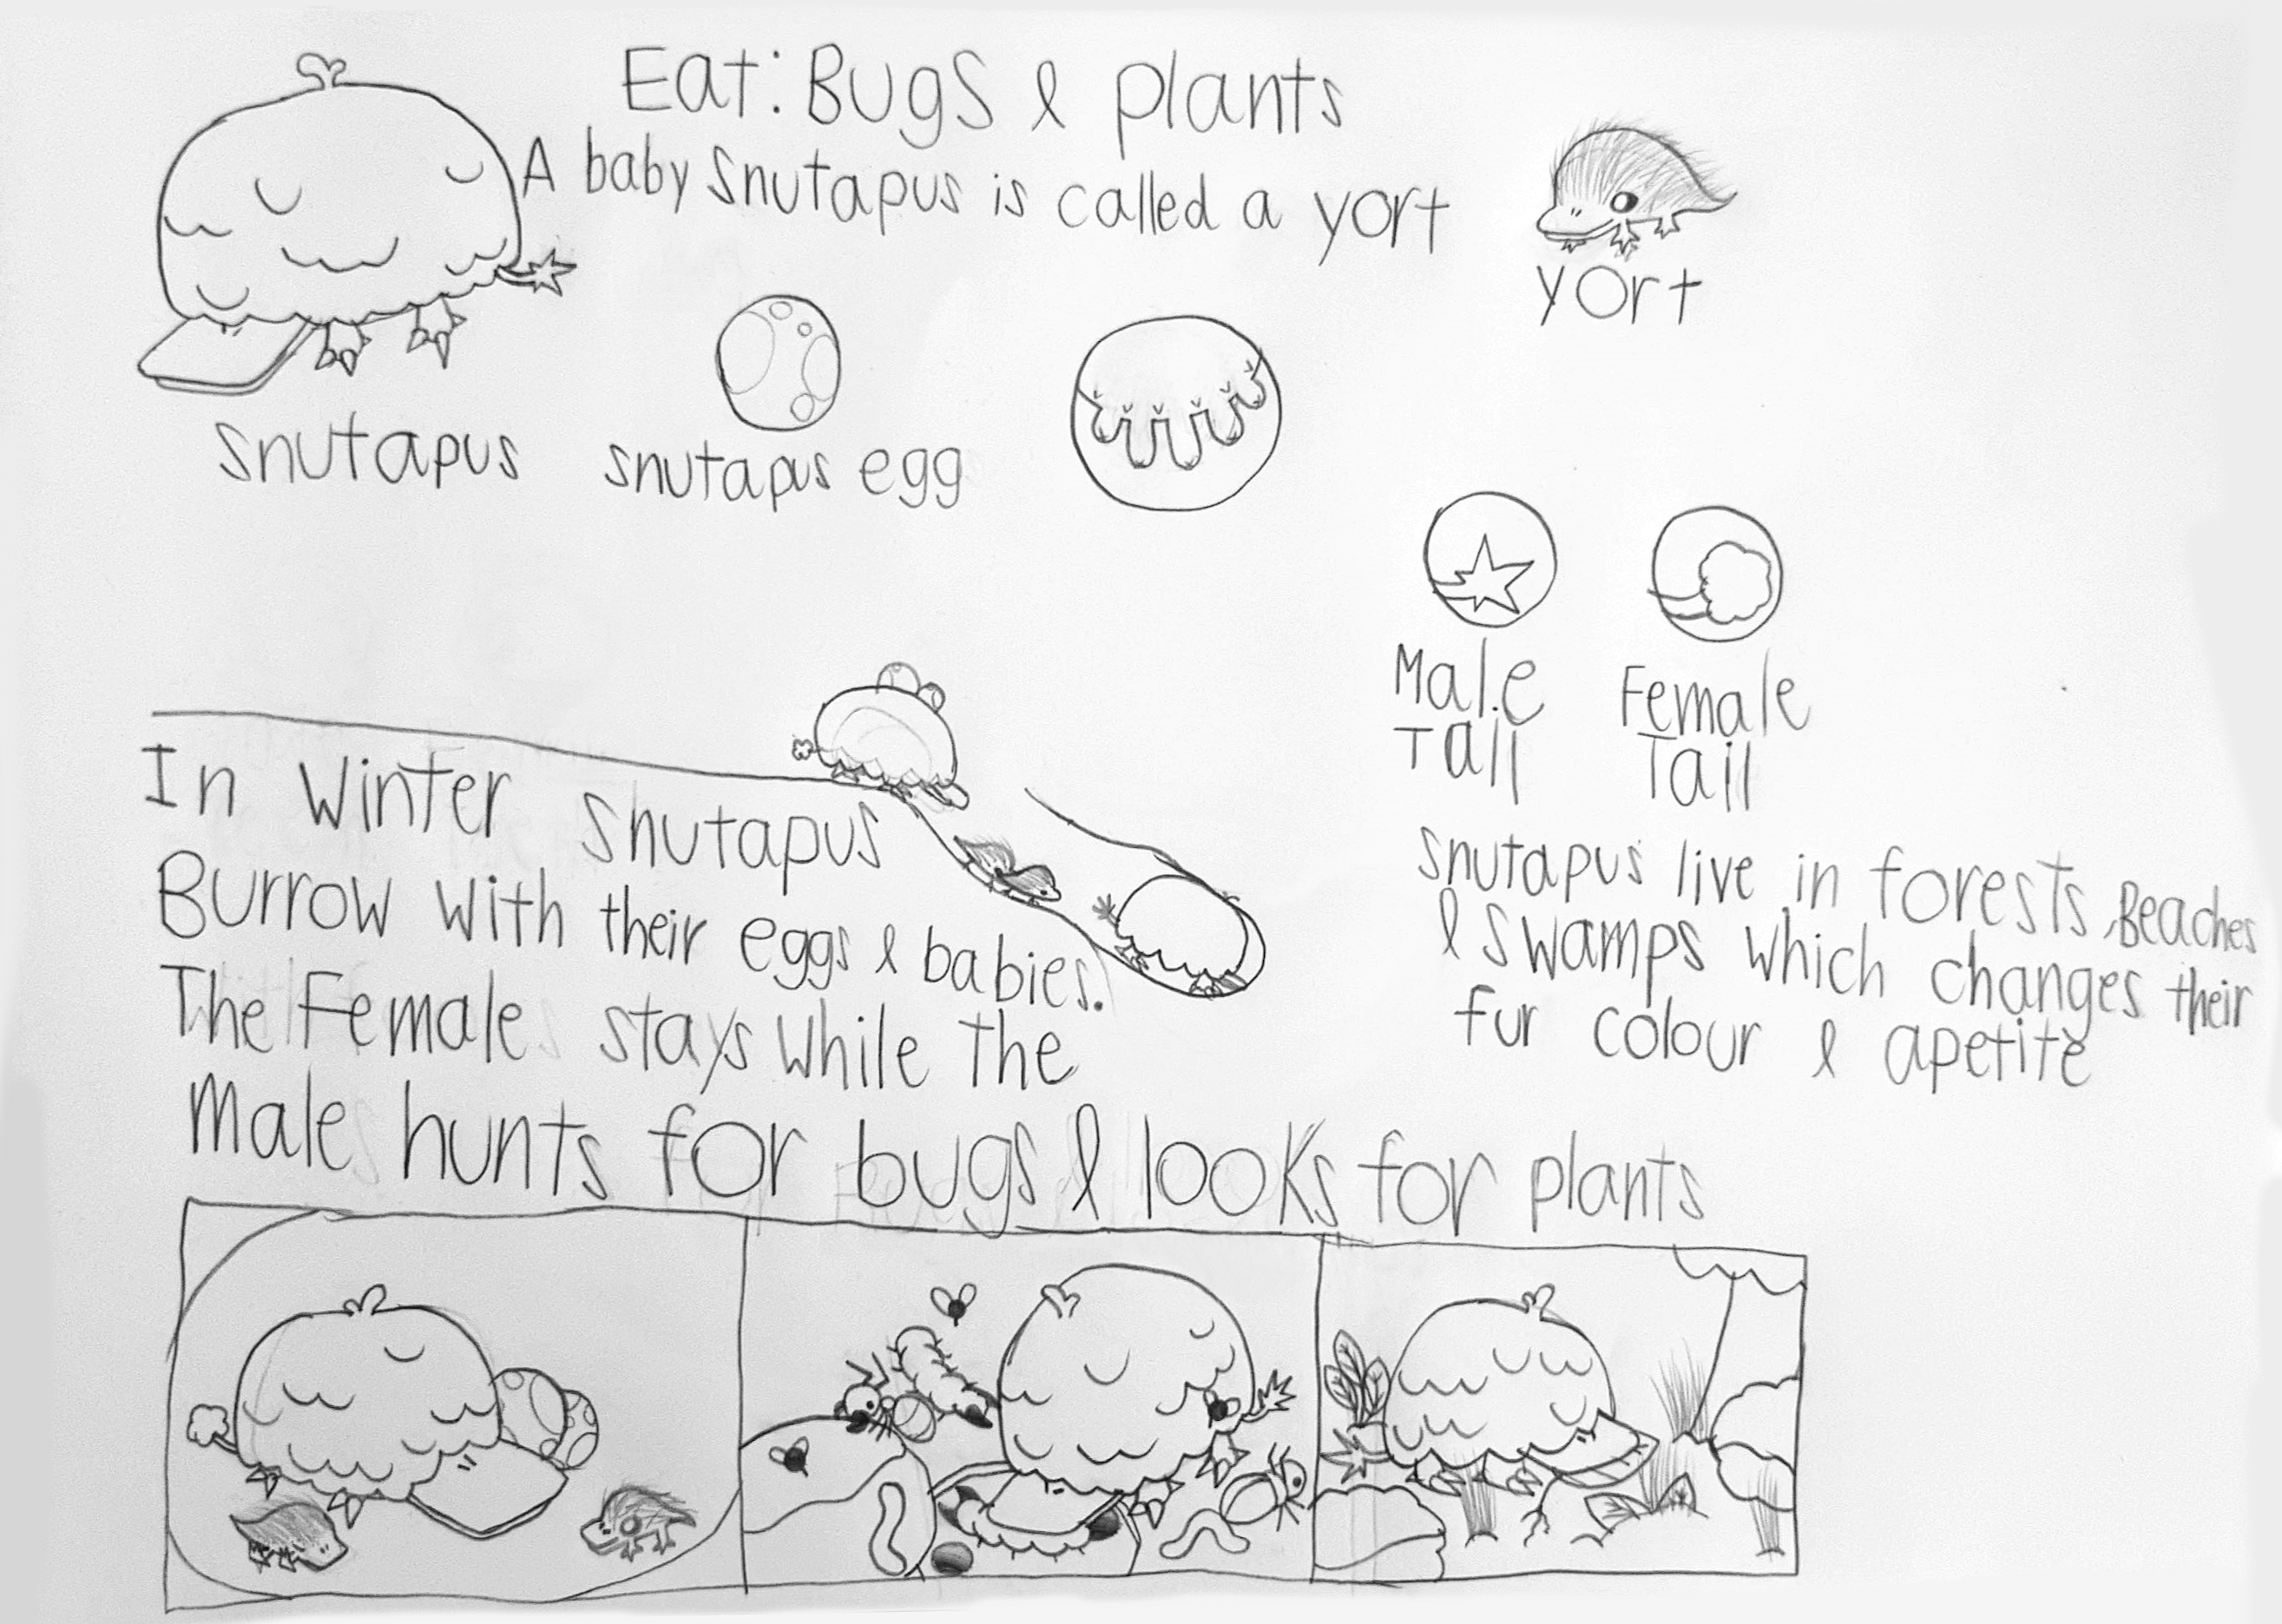 Eat: Bugs & plants
A baby snutapus is called a yort
yort
snutapus
snutapus egg
Male
Tail
Female
Tail
In Winter snutapus
Burrow with their eggs & babies.
The Female stays while the
Male hunts for bugs & looks for plants
snutapus live in forests, Beaches
& swamps which changes their
fur colour & apetite